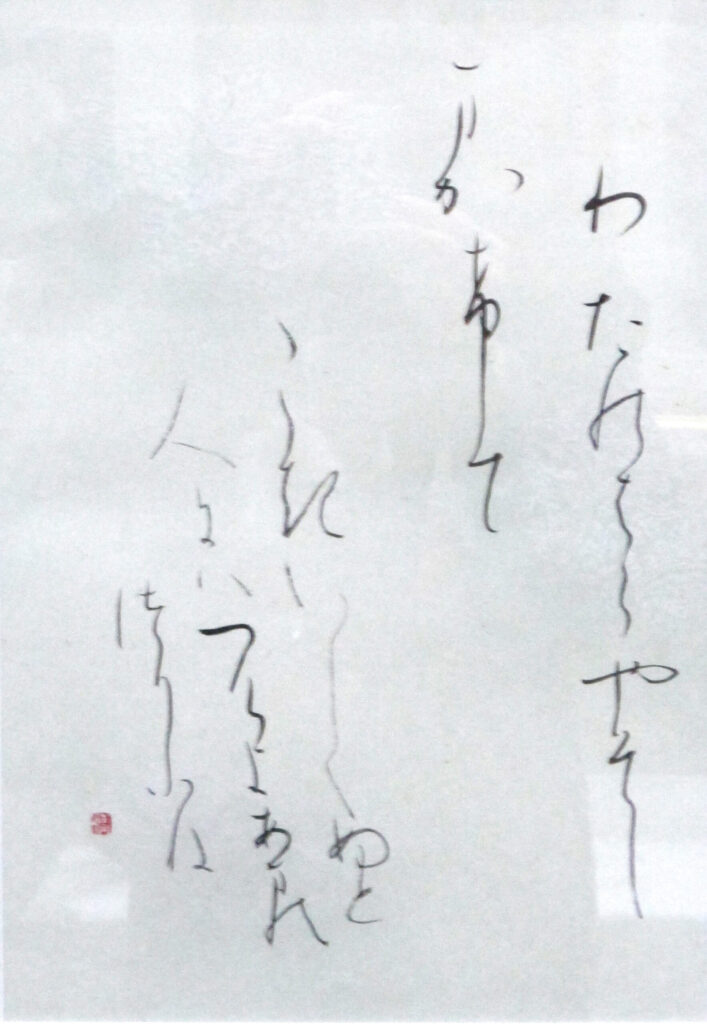 わたのはらやそし
まかけて
こきいてぬと
人にはつけよあまの
つりふね